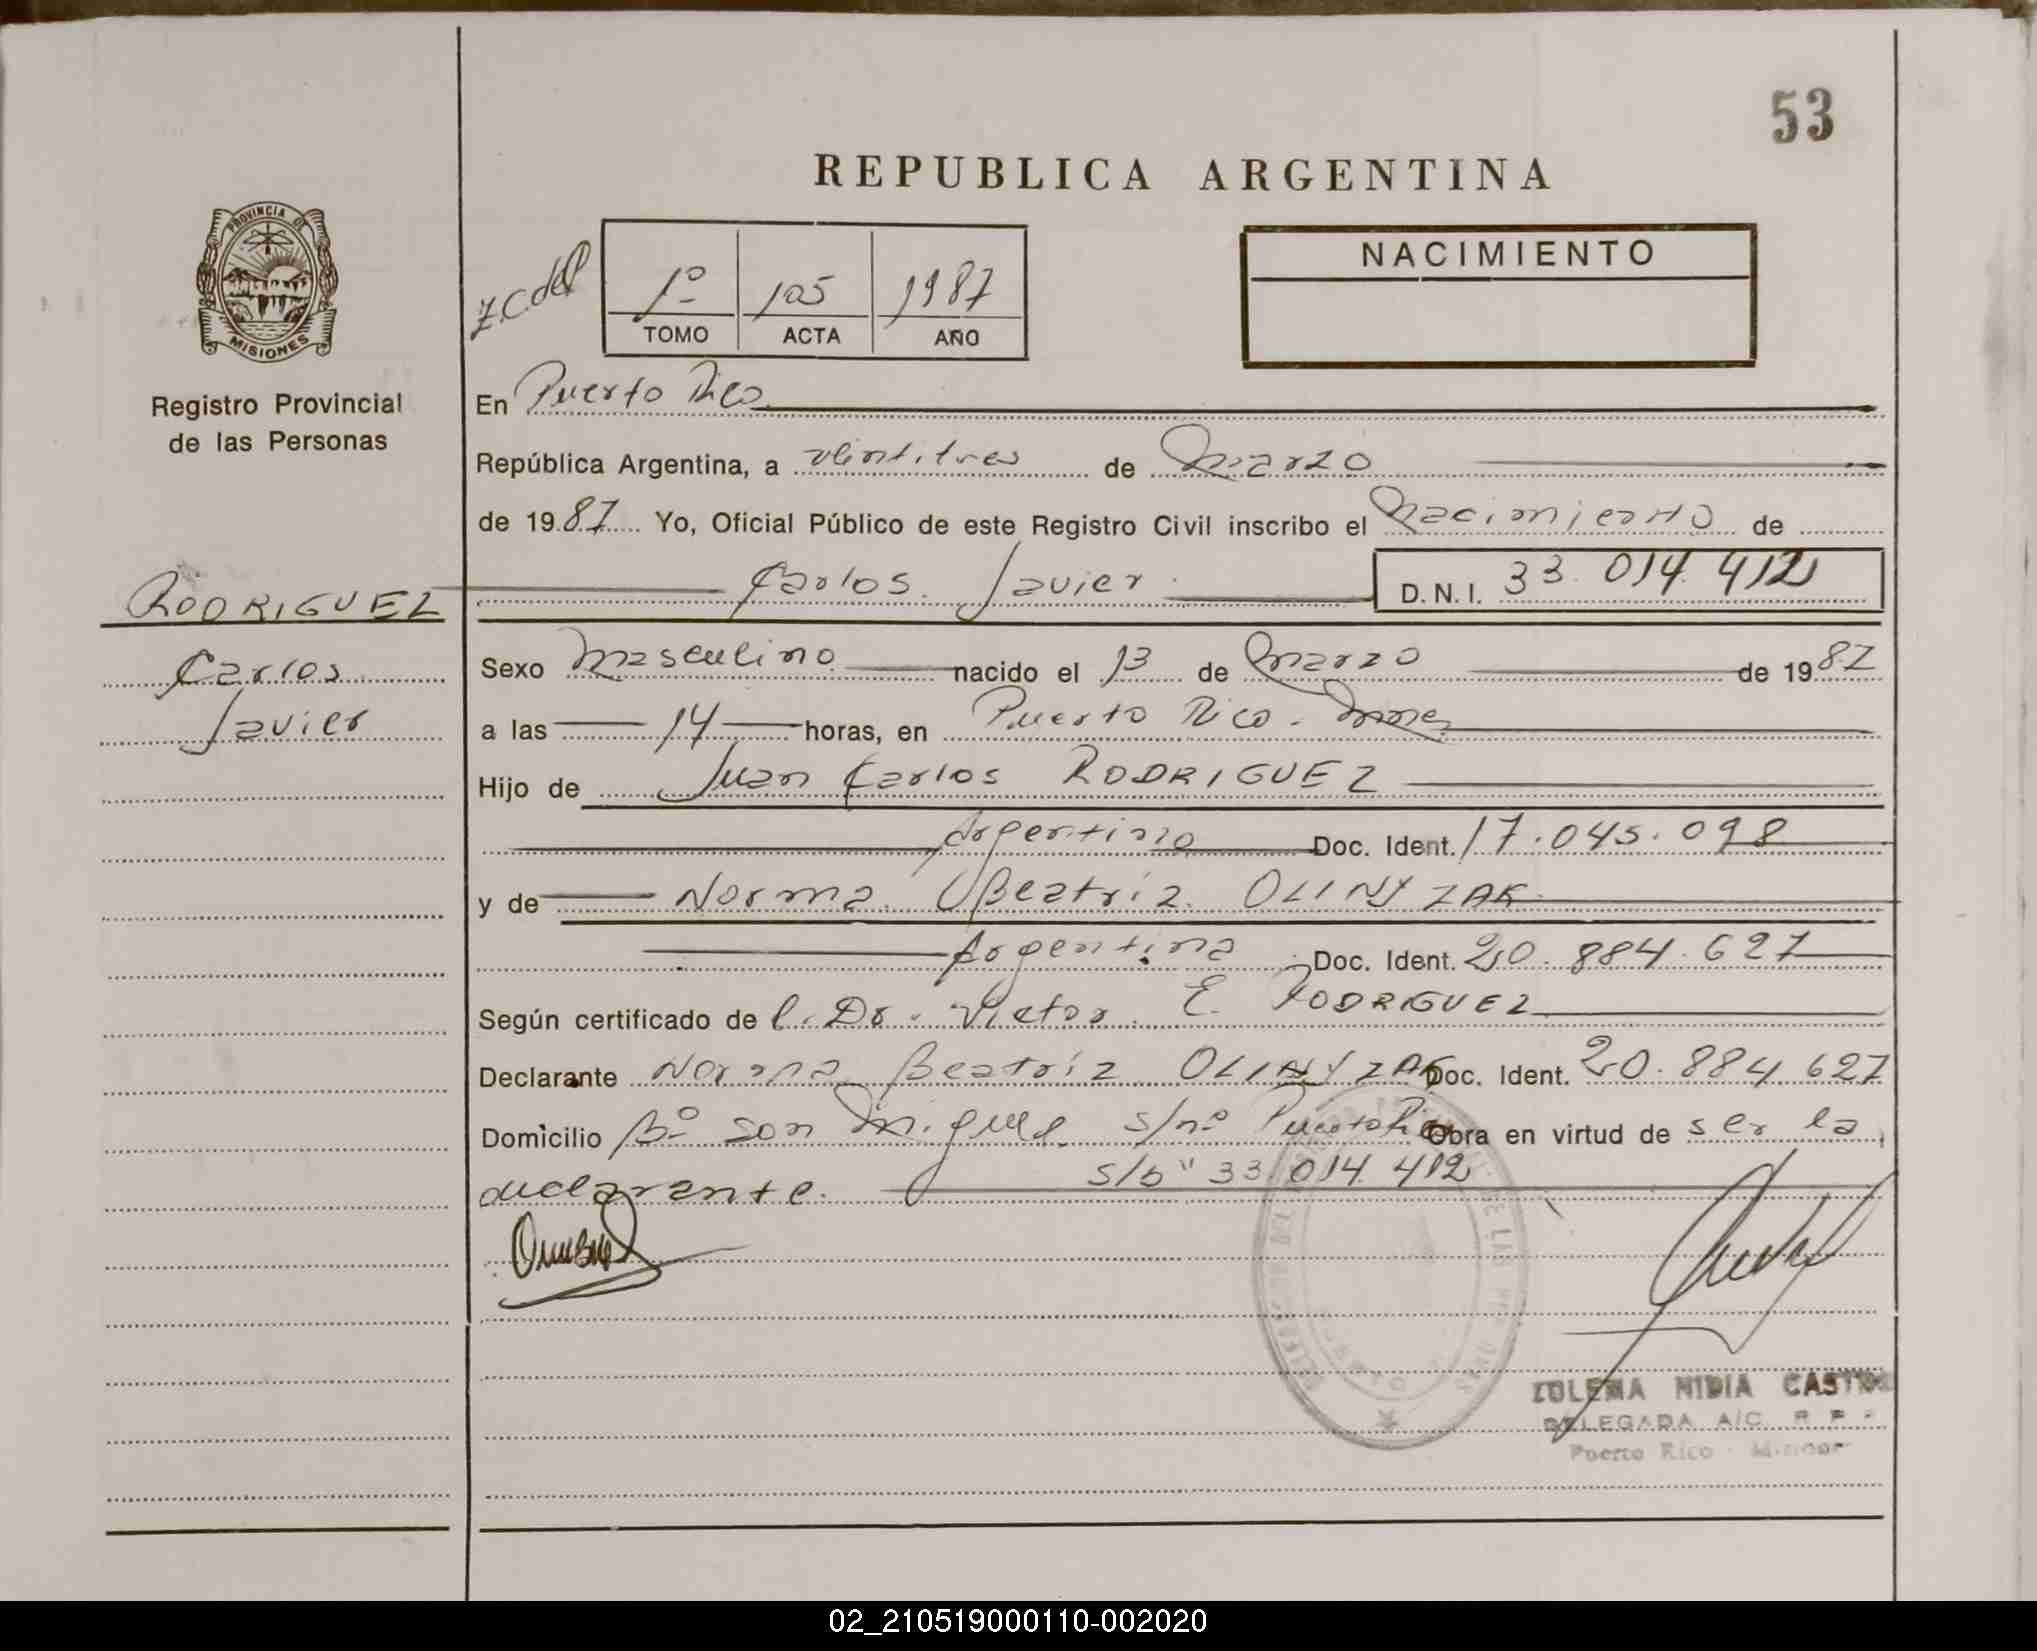 53
REPUBLICA ARGENTINA
PROVINCIA DE
MISIONES
Registro Provincial
de las Personas
1º 105 1987
TOMO ACTA AÑO
NACIMIENTO
En Puerto Rico
República Argentina, a veintitres de Marzo
de 1987 Yo, Oficial Público de este Registro Civil inscribo el Nacimiento de
RODRIGUEZ
Carlos
Javier
Carlos Javier D.N.I. 33.014.412
Sexo Masculino nacido el 13 de Marzo de 1987
a las 14 horas, en Puerto Rico - Mnes
Hijo de Juan Carlos RODRIGUEZ
Argentino Doc. Ident. 17.045.098
y de Norma Beatriz OLINYZAK
Argentina Doc. Ident. 20.884.627
Según certificado de l. Dr. Victor E. RODRIGUEZ
Declarante Norma Beatriz OLINYZAK Doc. Ident. 20.884.627
Domicilio Bº San Miguel s/nº Puerto Rico Obra en virtud de ser la
declarante. 33.014.412
ZULEMA NIDIA CASTRO
DELEGADA A/C. R P
Puerto Rico - Misiones
02_210519000110-002020